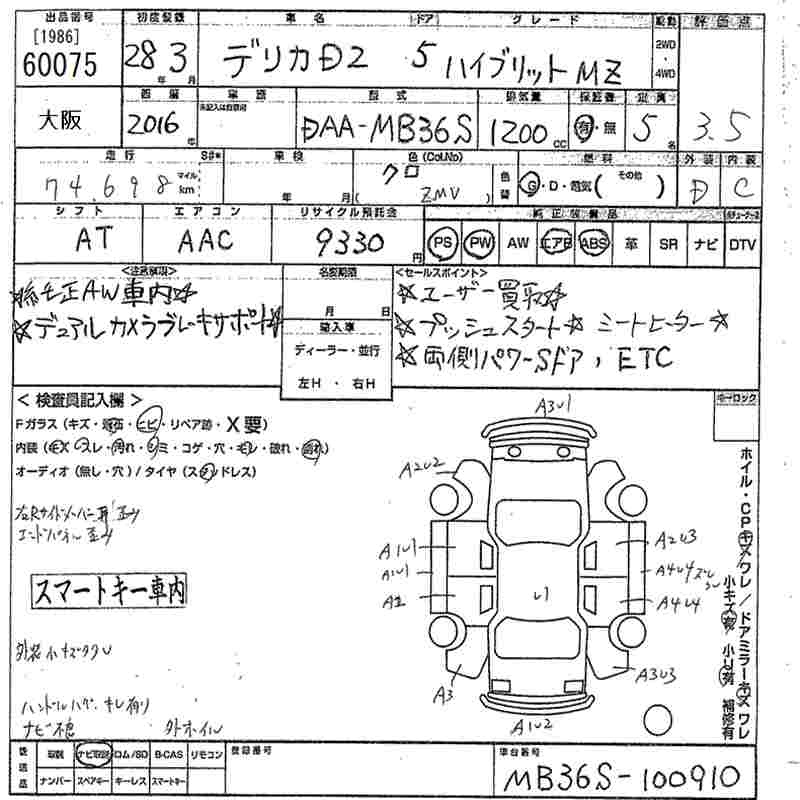 出品番号 初度登録 車名 ドア グレード 駆動 評価点
[1986]
60075 28年 3月 デリカD2 5 ハイブリットMZ 2WD・4WD
西暦 車歴 型式 排気量 保証書 定員
未記入は自家用
大阪 2016年 DAA-MB36S 1200cc 有・無 5名 3.5
走行 S#* 車検 色(Col.No) 燃料 外装 内装
74,698 マイル km 年 月 クロ (ZMV) 色替 G・D・電気(その他) D C
シフト エアコン リサイクル預託金 純正装備品
AT AAC 9330円 PS PW AW エアB ABS 革 SR ナビ DTV
<注意事項> 名変期限 <セールスポイント>
☆純正AW車内☆
☆デュアルカメラブレーキサポート☆
月 日
輸入車
ディーラー・並行
左H ・ 右H
☆ユーザー買取☆
☆プッシュスタート☆ シートヒーター☆
☆両側パワーSドア, ETC
< 検査員記入欄 > キーロック
Fガラス(キズ・飛石・ヒビ・リペア跡・X要)
内装(キズ・スレ・汚れ・シミ・コゲ・穴・モレ・破れ・)
オーディオ(無し・穴)/タイヤ(スタッドレス)
右Rサイドメンバー 歪み
エンドパネル 歪み
スマートキー車内
外装小キズ
ハンドル キレ有り
ナビ不良 外ホイル
A3U1
A2U2
A1U1
A1U1
A1
A3
U1
A2U3
A4U4
A4U4
A3U3
A1U2
ホイル・CPキズワレ/ドアミラーキズワレ
小キズ有 小U有 補修有
後送品 取説 ナビ取説 ロム/SD B-CAS リモコン 登録番号 車台番号
ナンバー スペアキー キーレス スマートキー MB36S-100910